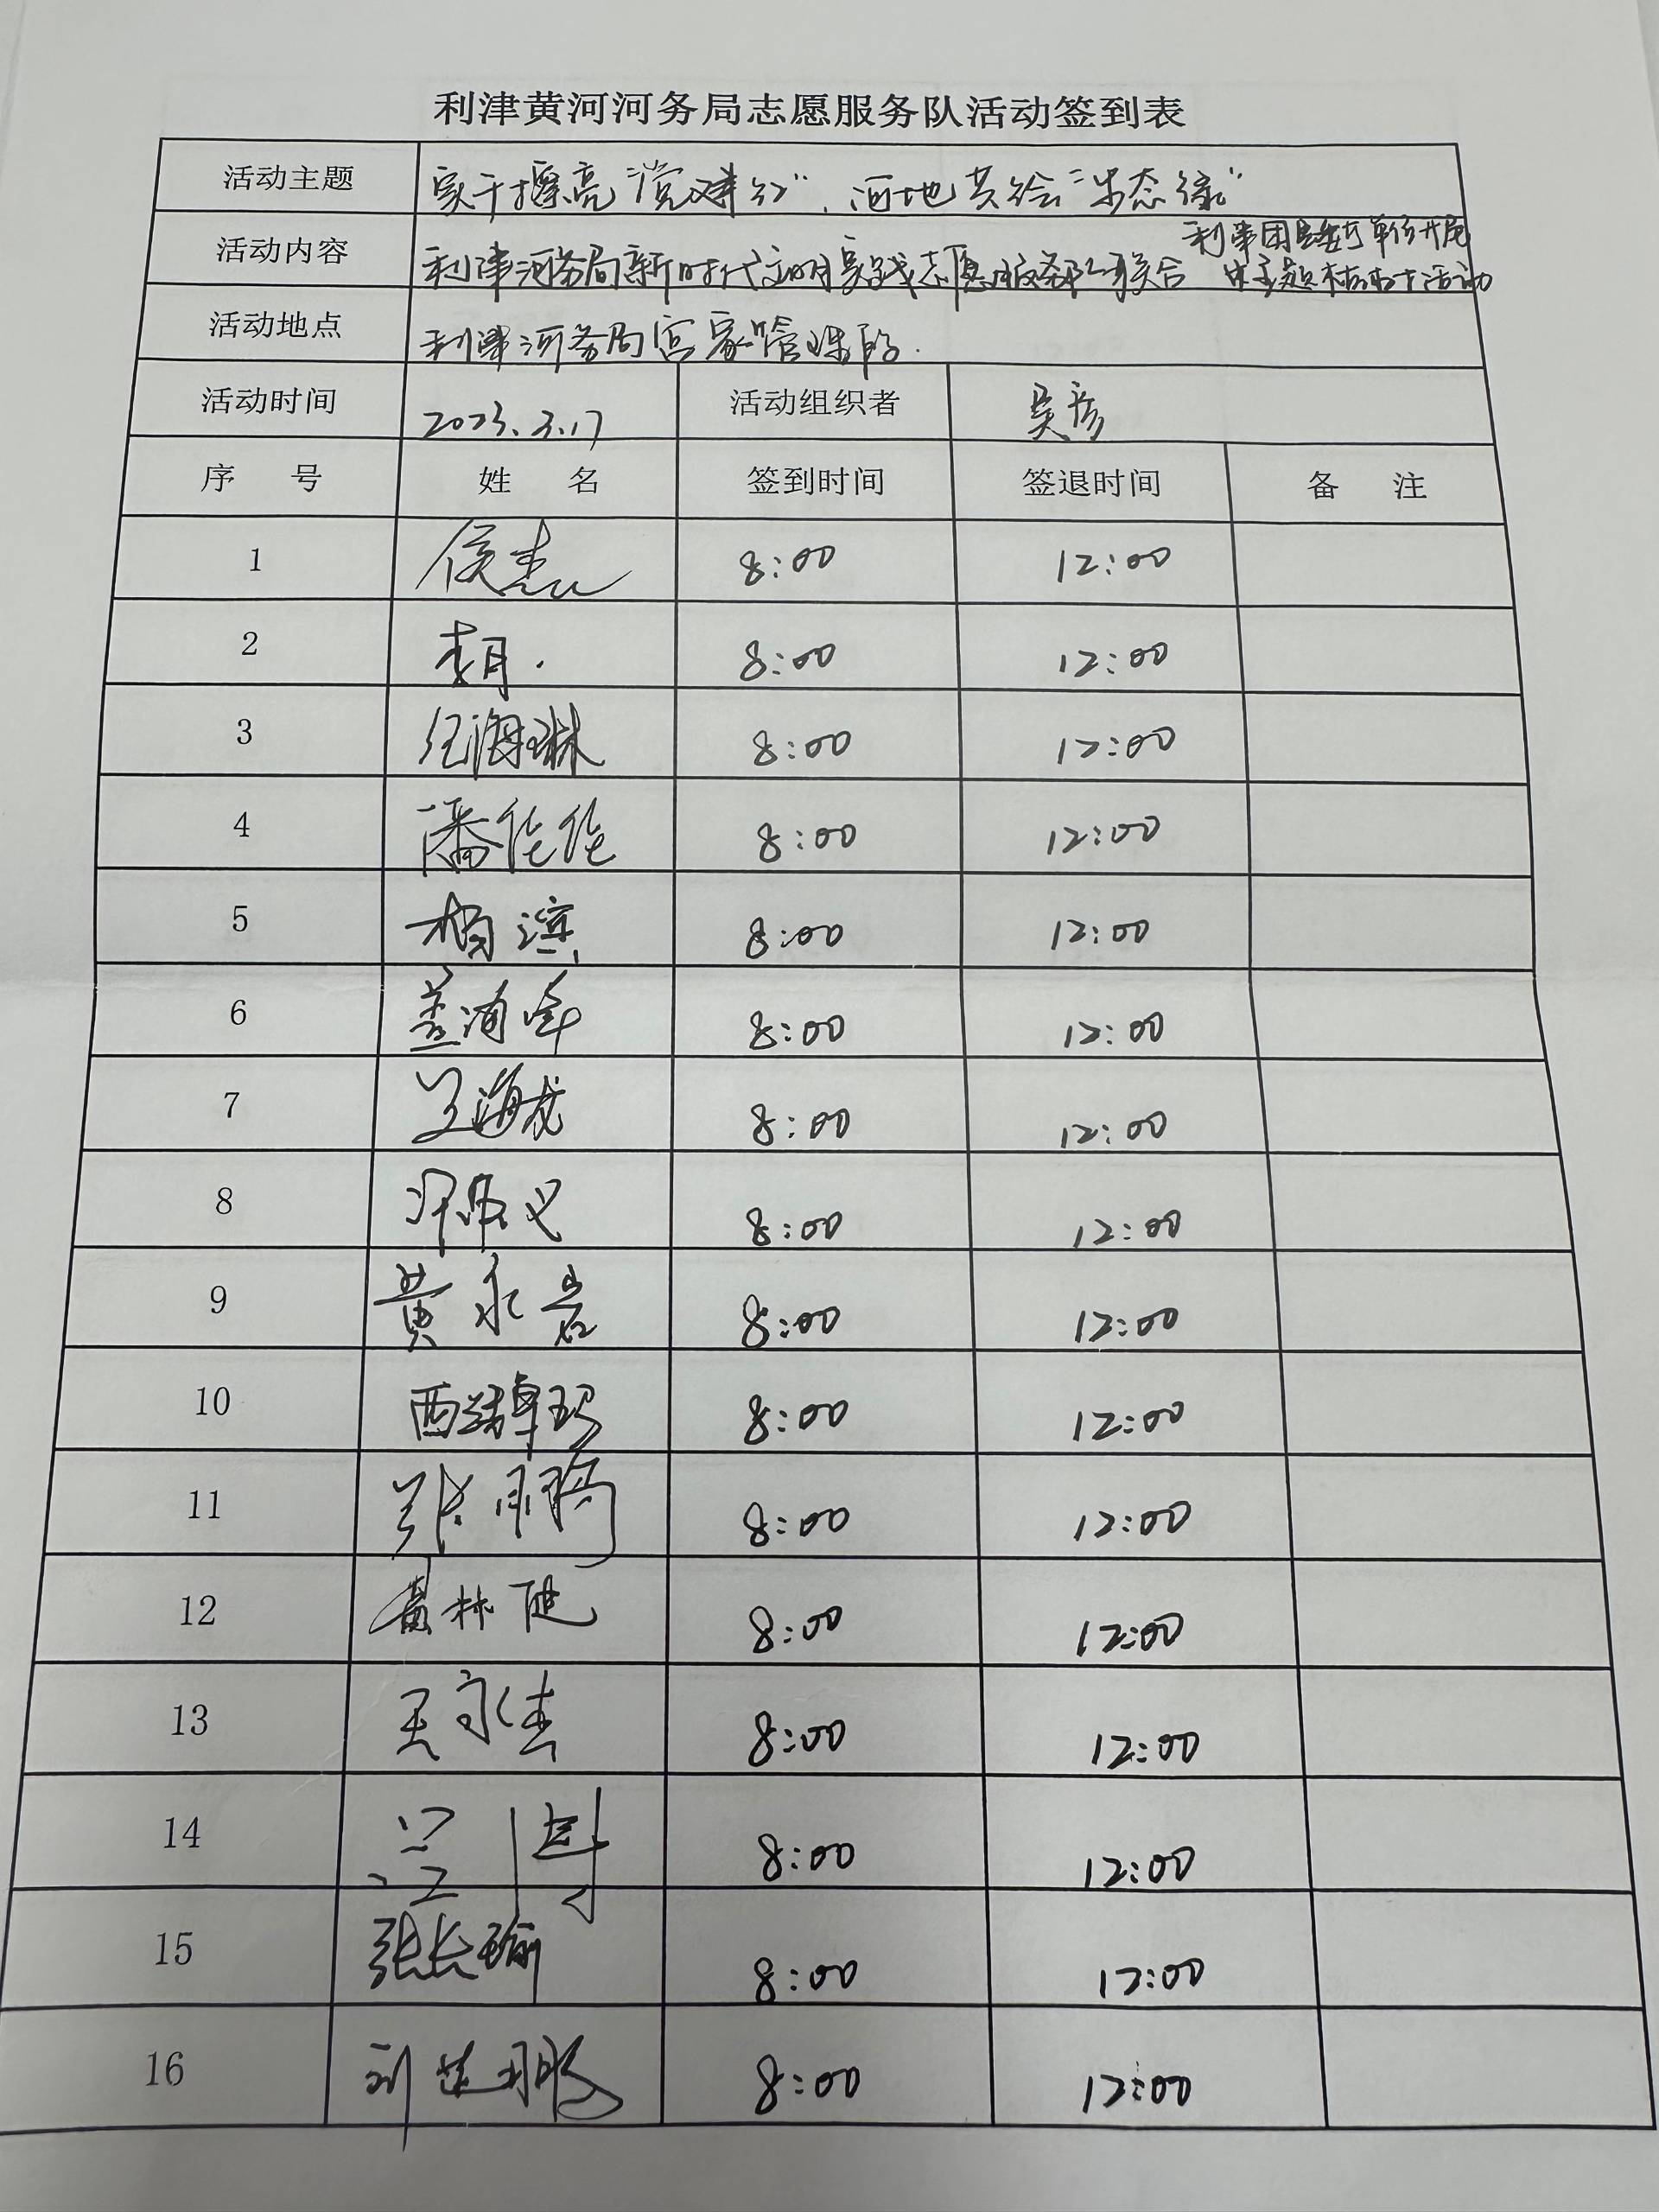 利津黄河河务局志愿服务队活动签到表
活动主题 实干擦亮“党建红”，河地共绘“生态绿”
利津团县委等单位开展
活动内容 利津河务局新时代文明实践志愿服务队联合 主题植树活动
活动地点 利津河务局宫家管理段.
活动时间 2023.3.17 活动组织者 吴彦
序 号 姓 名 签到时间 签退时间 备 注
1 侯杰 8:00 12:00
2 李月. 8:00 12:00
3 任海琳 8:00 12:00
4 潘佳佳 8:00 12:00
5 杨滨 8:00 12:00
6 盖海峰 8:00 12:00
7 兰海龙 8:00 12:00
8 8:00 12:00
9 黄永岩 8:00 12:00
10 西绕卓玛 8:00 12:00
11 张雨琦 8:00 12:00
12 黄林 8:00 12:00
13 王守佳 8:00 12:00
14 8:00 12:00
15 张长瑜 8:00 12:00
16 刘建鹏 8:00 12:00